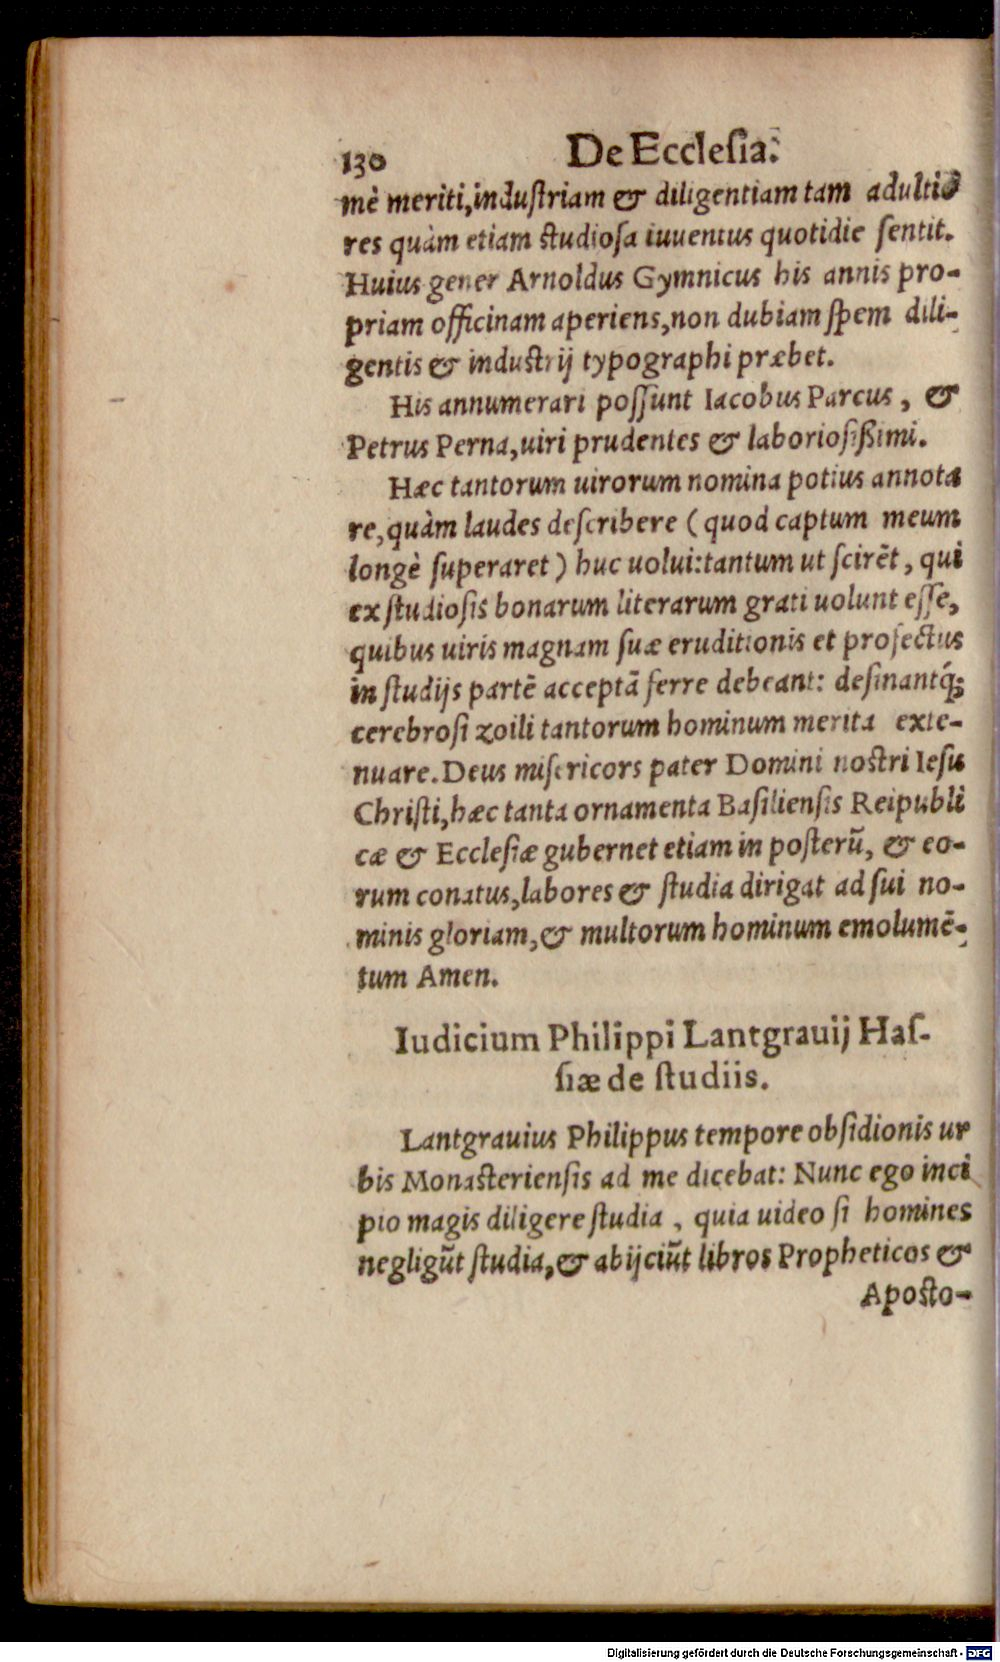 130 De Ecclesia.
mè meriti, induſtriam & diligentiam tam adultio
res quàm etiam ſtudioſa iuuentus quotidie ſentit.
Huius gener Arnoldus Gymnicus his annis pro-
priam officinam aperiens, non dubiam ſpem dili-
gentis & induſtrij typographi præbet.
His annumerari poſſunt Iacobus Parcus, &
Petrus Perna, uiri prudentes & laborioſißimi.
Hæc tantorum uirorum nomina potius annota
re, quàm laudes deſcribere (quod captum meum
longè ſuperaret) huc uolui: tantum ut ſcirēt, qui
ex ſtudioſis bonarum literarum grati uolunt eſſe,
quibus uiris magnam ſuæ eruditionis et profectus
in ſtudijs partē acceptā ferre debeant: deſinantq́;
cerebroſi zoili tantorum hominum merita exte-
nuare. Deus miſericors pater Domini noſtri Ieſu
Chriſti, hæc tanta ornamenta Baſilienſis Reipubli
cæ & Eccleſiæ gubernet etiam in poſterū, & eo-
rum conatus, labores & ſtudia dirigat ad ſui no-
minis gloriam, & multorum hominum emolumē-
tum Amen.
Iudicium Philippi Lantgrauij Haſ-
ſiæ de ſtudiis.
Lantgrauius Philippus tempore obſidionis ur
bis Monaſterienſis ad me dicebat: Nunc ego inci
pio magis diligere ſtudia, quia uideo ſi homines
negligūt ſtudia, & abijciūt libros Propheticos &
Apoſto-
Digitalisierung gefördert durch die Deutsche Forschungsgemeinschaft - DFG